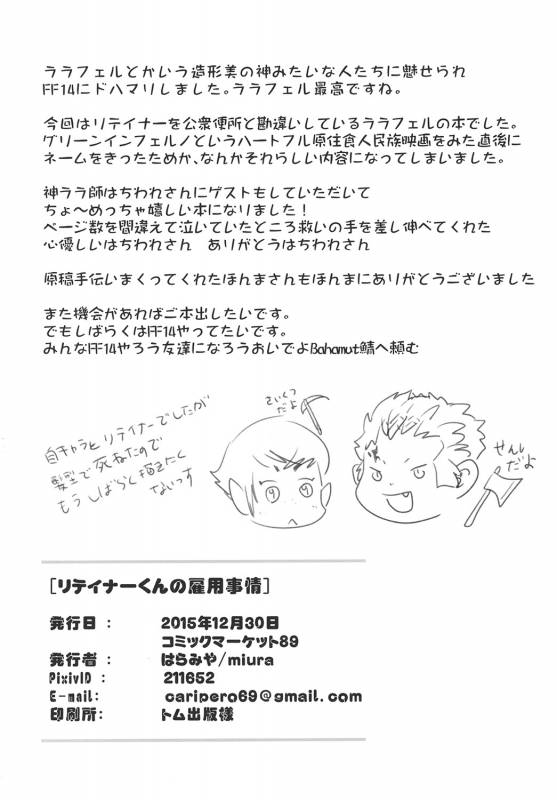 ララフェルとかいう造形美の神みたいな人たちに魅せられ
FF14にドハマりしました。ララフェル最高ですね。
今回はリテイナーを公衆便所と勘違いしているララフェルの本でした。
グリーンインフェルノというハートフル原住食人民族映画をみた直後に
ネームをきったためか、なんかそれらしい内容になってしまいました。
神ララ師はちわれさんにゲストもしていただいて
ちょ〜めっちゃ嬉しい本になりました！
ページ数を間違えて泣いていたところ救いの手を差し伸べてくれた
心優しいはちわれさん　ありがとうはちわれさん
原稿手伝いまくってくれたほんまさんもほんまにありがとうございました
また機会があればご本出したいです。
でもしばらくはFF14やってたいです。
みんなFF14やろう友達になろうおいでよBahamut鯖へ頼む
自キャラとリテイナーでしたが
髪型で死ねたので
もうしばらく描きたく
ないっす
さいくつ
だよ
せんし
だよ
[リテイナーくんの雇用事情]
発行日： 2015年12月30日
コミックマーケット89
発行者： はらみや/miura
PixivID： 211652
E-mail: caripero69@gmail.com
印刷所: トム出版様